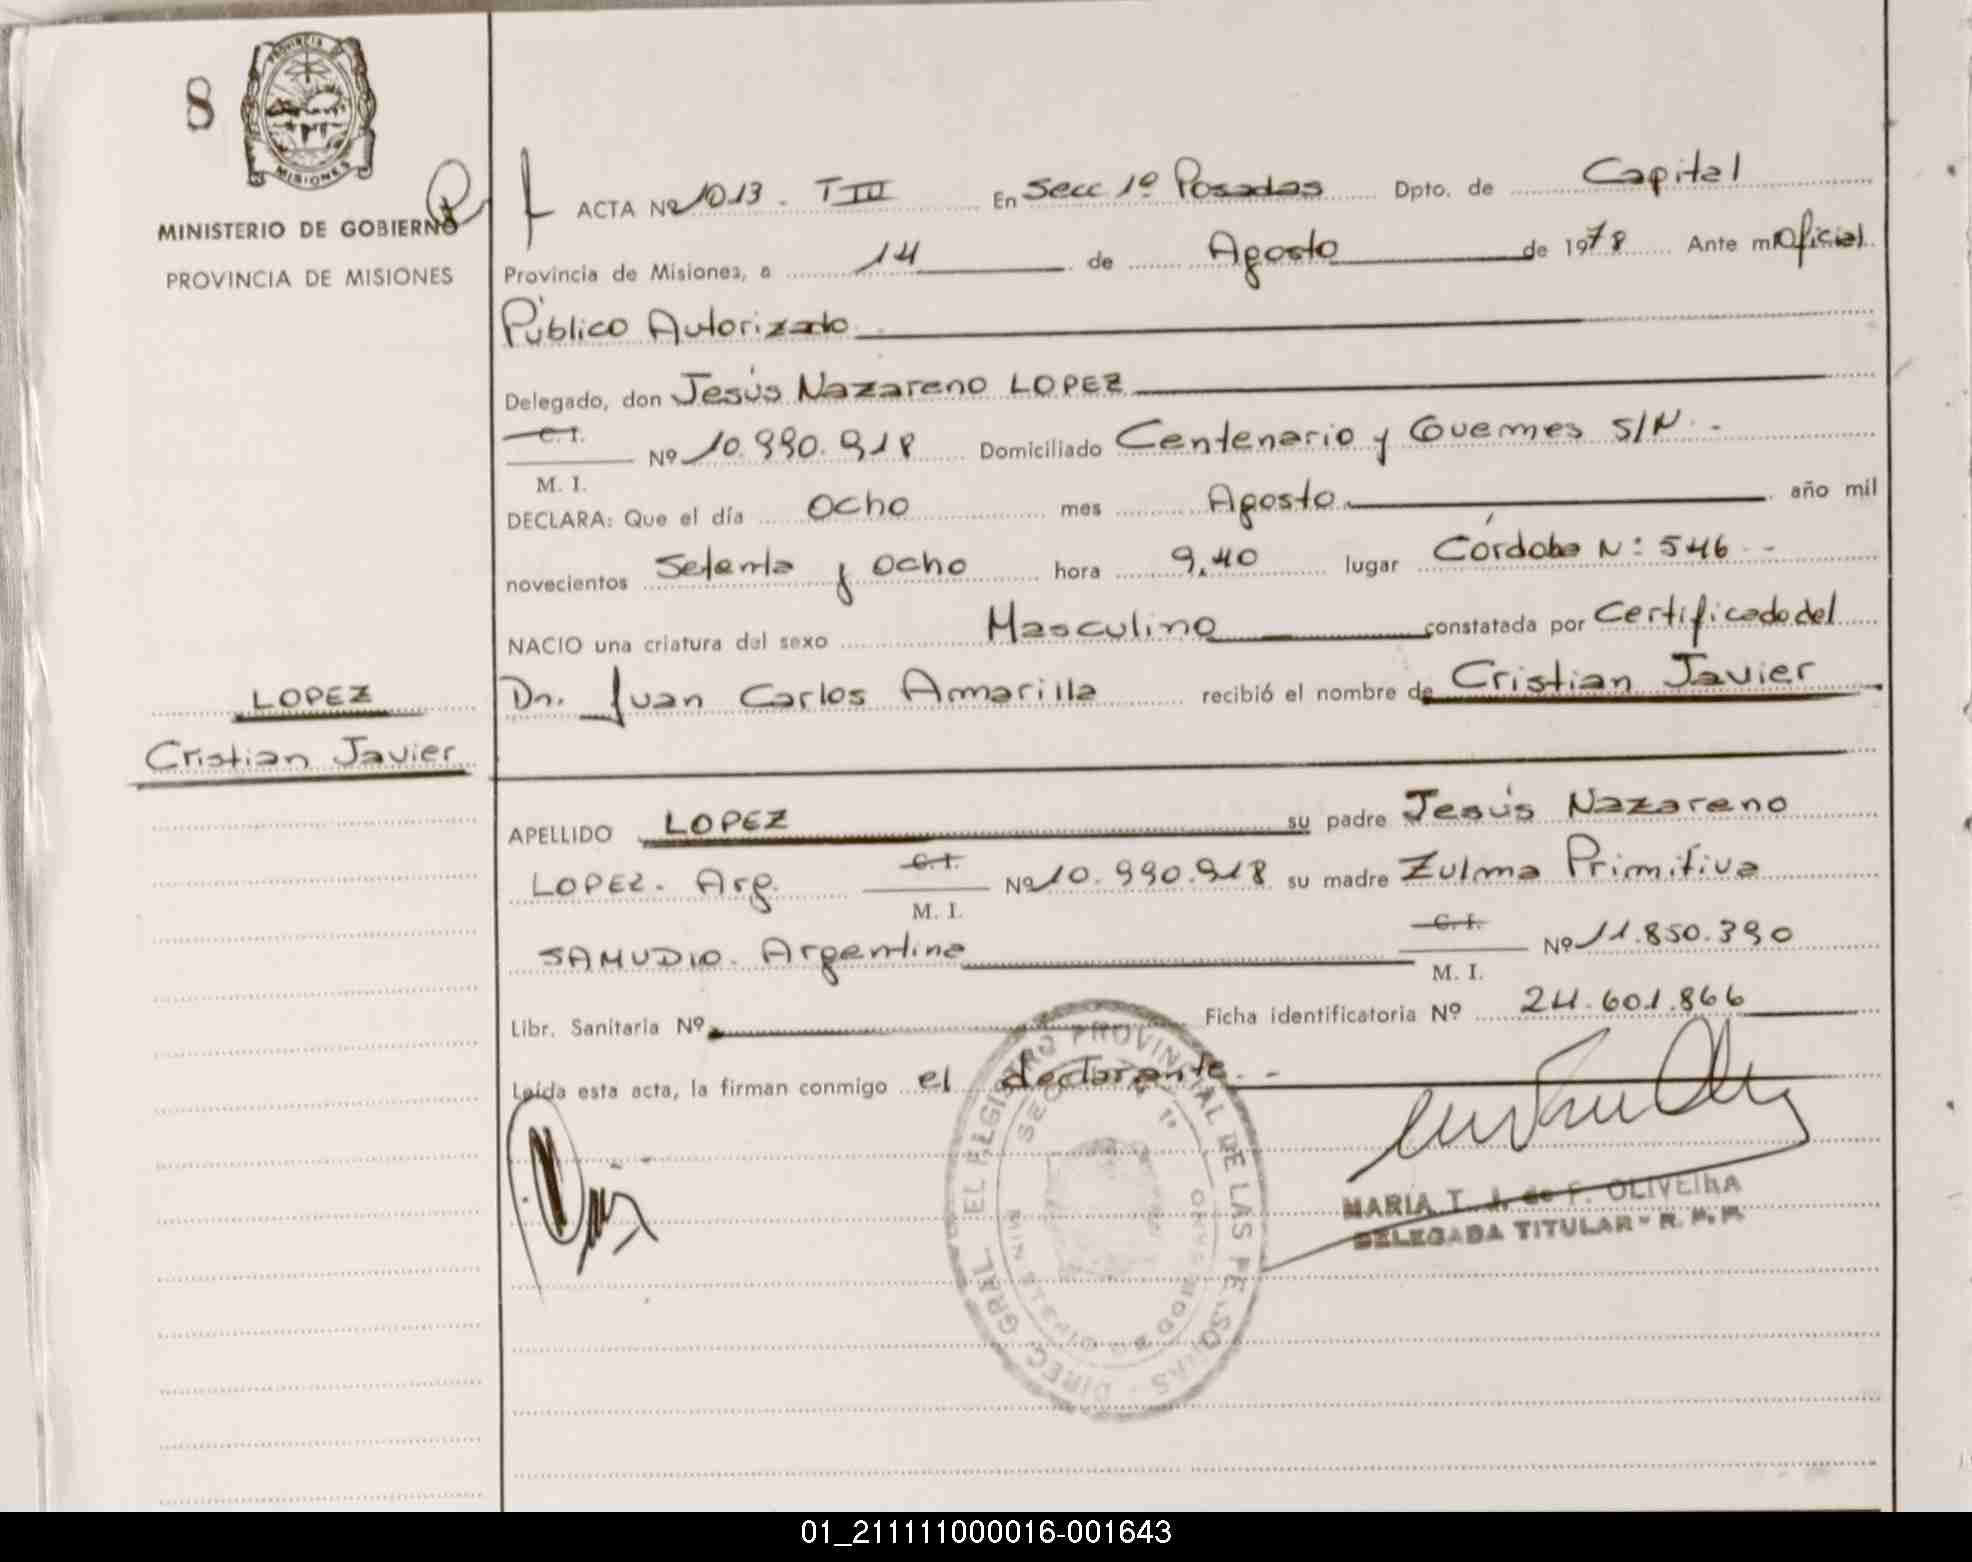 8
PROVINCIA DE
MISIONES
MINISTERIO DE GOBIERNO
PROVINCIA DE MISIONES
ACTA Nº 1013. T III En Secc 1º Posadas Dpto. de Capital
Provincia de Misiones, a 14 de Agosto de 1978 Ante mi Oficial
Público Autorizado
Delegado, don Jesús Nazareno LOPEZ
C. I.
Nº 10.990.918 Domiciliado Centenario y Guemes S/N -
M. I.
DECLARA: Que el día Ocho mes Agosto año mil
novecientos Setenta y Ocho hora 9,40 lugar Córdoba N: 546 --
NACIO una criatura del sexo Masculino constatada por Certificado del
LOPEZ
Dr. Juan Carlos Amarilla recibió el nombre de Cristian Javier
Cristian Javier
APELLIDO LOPEZ su padre Jesús Nazareno
LOPEZ. Arg. C. I. Nº 10.990.918 su madre Zulma Primitiva
M. I.
SAMUDIO. Argentina C. I. Nº 11.850.390
M. I.
Libr. Sanitaria Nº Ficha identificatoria Nº 24.601.866
Leída esta acta, la firman conmigo el declarante. -
DIREC. GRAL. DEL REGISTRO PROVINCIAL DE LAS PERSONAS
MARIA T. J. de F. OLIVEIRA
DELEGADA TITULAR - R. P. P.
01_211111000016-001643